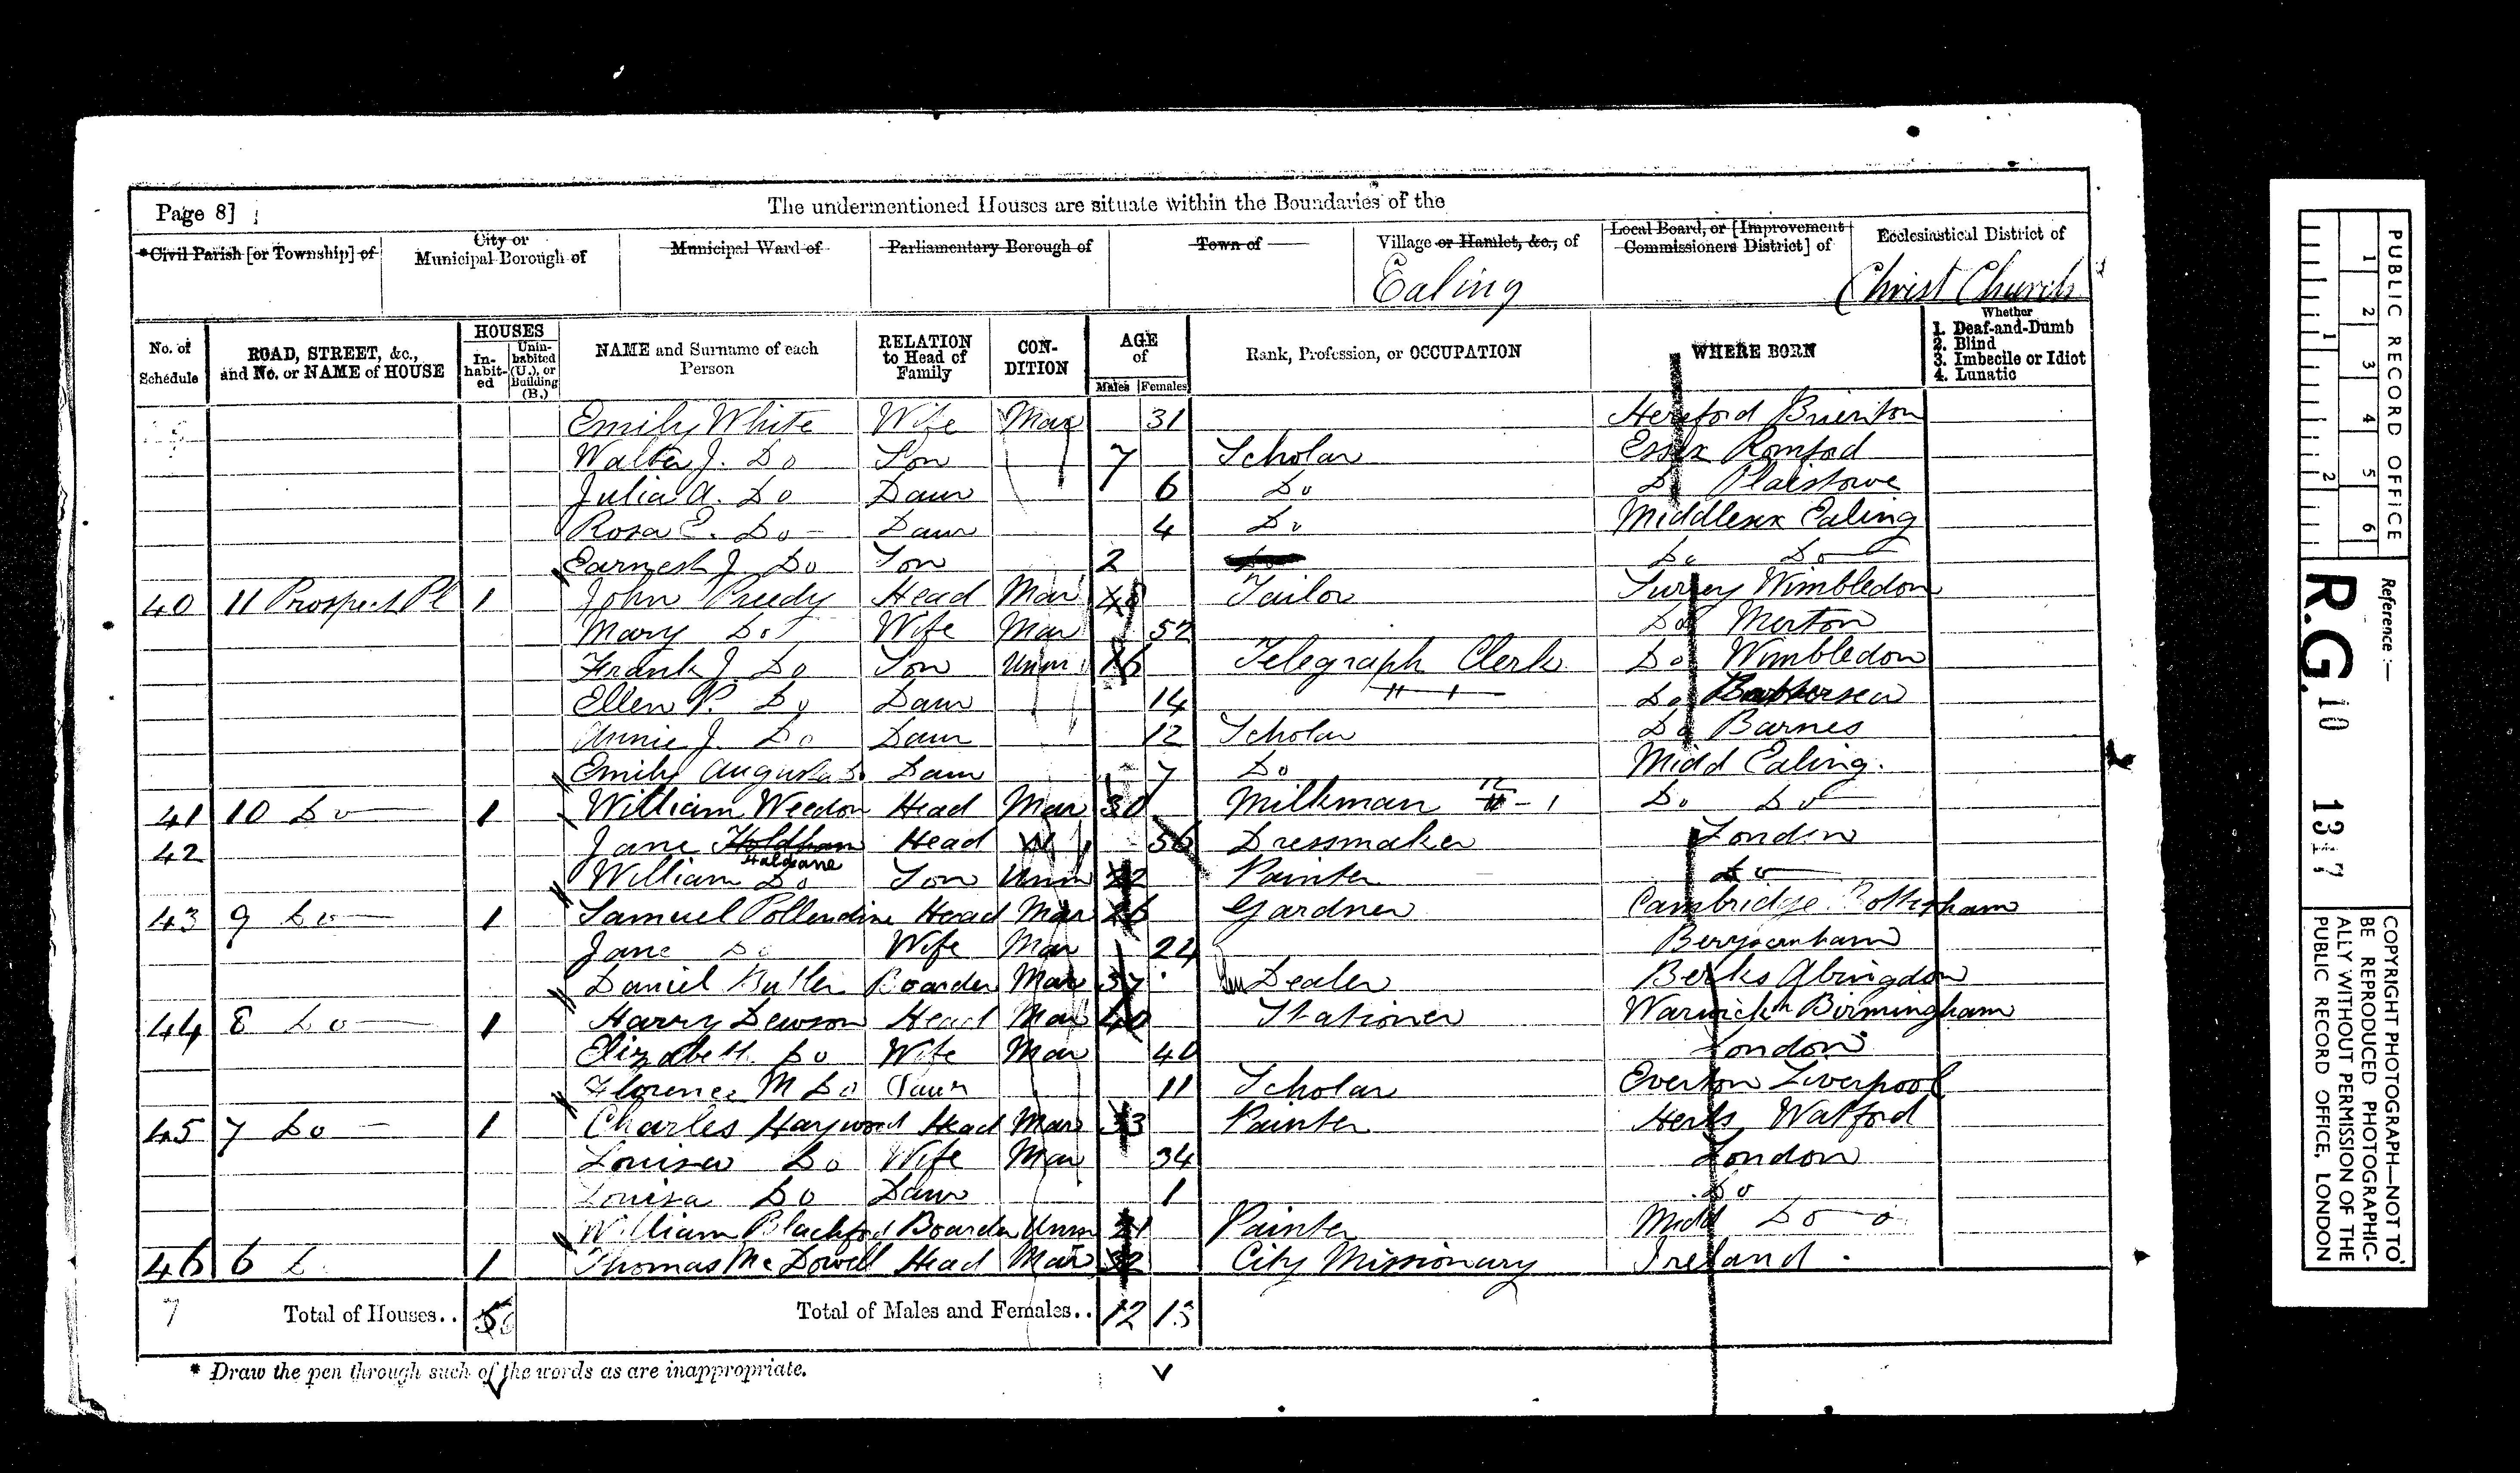 Page 8]
The undermentioned Houses are situate within the Boundaries of the
*Civil Parish [or Township] of
City or Municipal Borough of
Municipal Ward of
Parliamentary Borough of
Town of
Village or Hamlet, &c., of
Local Board, or [Improvement Commissioners District] of
Ecclesiastical District of
Ealing
Christ Church
No. of Schedule
ROAD, STREET, &c., and No. or NAME of HOUSE
HOUSES
In-habit-ed
Unin-habited (U.), or Building (B.)
NAME and Surname of each Person
RELATION to Head of Family
CON-DITION
AGE of
Males
Females
Rank, Profession, or OCCUPATION
WHERE BORN
Whether
1. Deaf-and-Dumb
2. Blind
3. Imbecile or Idiot
4. Lunatic
Emily White Wife Mar 31 Hereford
Walter J. Do Son 7 Scholar Essex Romford
Julia A. Do Daur 6 Do Do Plaistowe
Rosa E. Do Daur 4 Do Middlesex Ealing
Earnest J. Do Son 2 Do Do
40 11 Prospect Pl 1 John Head Mar 48 Tailor Surrey Wimbledon
Mary Do Wife Mar 52 Do Merton
Frank J. Do Son Unm 16 Telegraph Clerk Do Wimbledon
Ellen P. Do Daur 14 Do Battersea
Annie J. Do Daur 12 Scholar Do Barnes
Emily Augusta Do Daur 7 Do Midd Ealing.
41 10 Do 1 William Weedon Head Mar 30 Milkman Do Do
42 Jane Holdham Haldane Head W 56 Dressmaker London
William Do Son Unm 22 Painter Do
43 9 Do 1 Samuel Pollendine Head Mar 26 Gardner Cambridge
Jane Do Wife Mar 24
Daniel Butler Boarder Mar 37 Dealer Berks Abingdon
44 8 Do 1 Harry Dewson Head Mar 40 Stationer Warwick Birmingham
Elizabeth Do Wife Mar 40 London
Florence M Do Daur 11 Scholar Everton Liverpool
45 7 Do 1 Charles Haywood Head Mar 33 Painter Herts Watford
Louisa Do Wife Mar 34 London
Louisa Do Daur 1 Do
William Blackford Boarder Unm 21 Painter Midd Do
46 6 Do 1 Thomas McDowell Head Mar 32 City Missionary Ireland
7 Total of Houses.. Total of Males and Females.. 12 13
* Draw the pen through such of the words as are inappropriate.
PUBLIC RECORD OFFICE
1 2 3 4 5 6
1 2
Reference:—
R.G. 10 1317
COPYRIGHT PHOTOGRAPH—NOT TO
BE REPRODUCED PHOTOGRAPHIC-
ALLY WITHOUT PERMISSION OF THE
PUBLIC RECORD OFFICE, LONDON